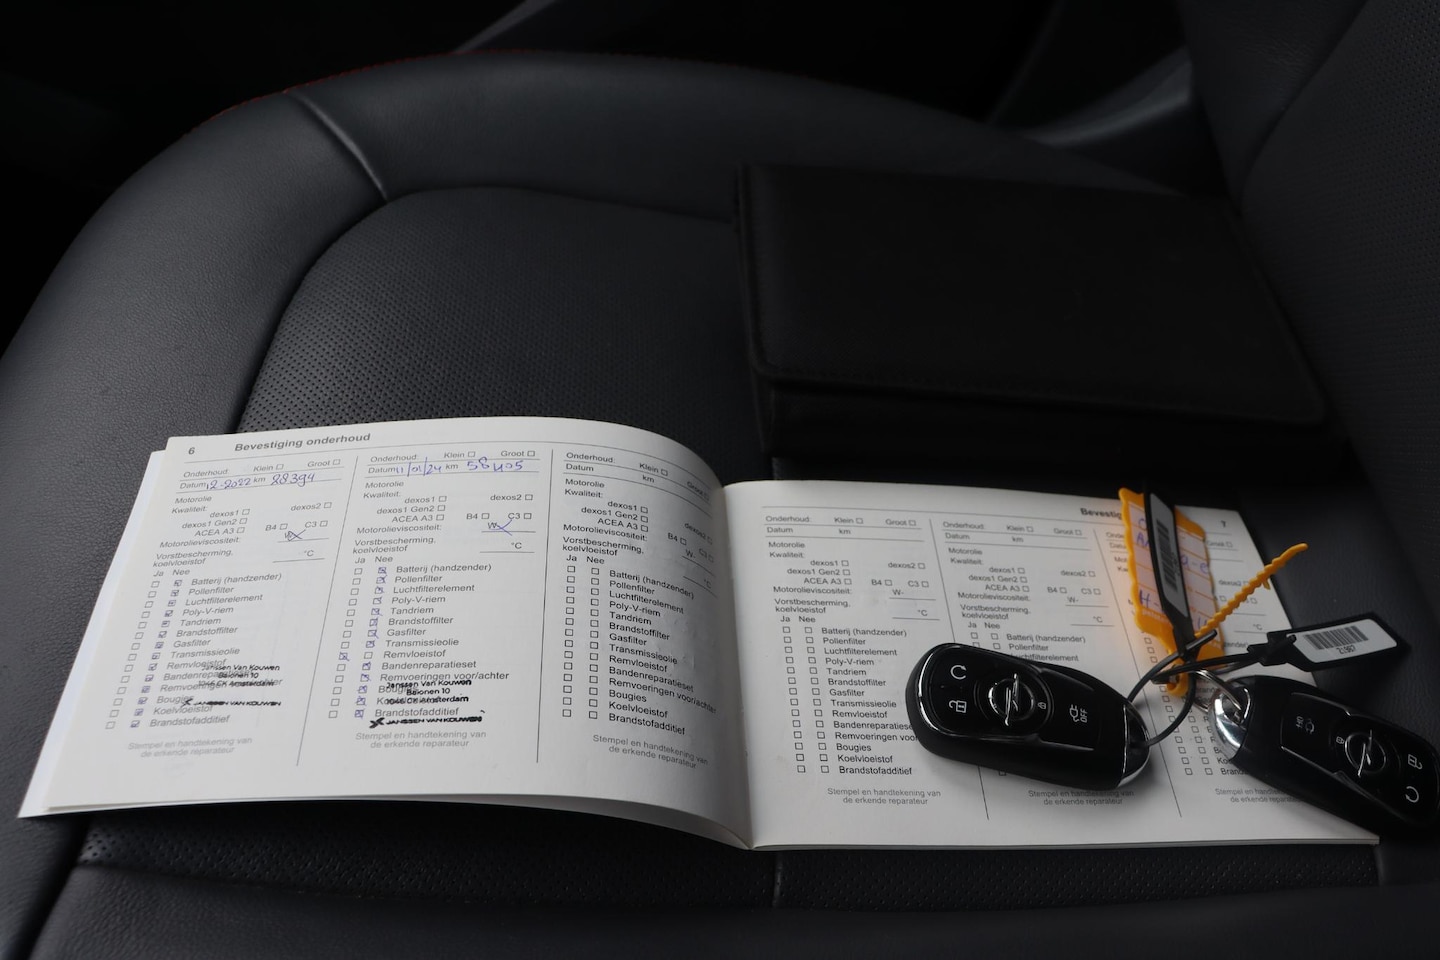 6 Bevestiging onderhoud
Onderhoud: Klein Groot
Datum 12-2022 km 28394
Motorolie
Kwaliteit:
dexos1 dexos2
dexos1 Gen2
ACEA A3 B4 C3
Motorolieviscositeit: W-
Vorstbescherming, °C
koelvloeistof
Ja Nee
Batterij (handzender)
Pollenfilter
Luchtfilterelement
Poly-V-riem
Tandriem
Brandstoffilter
Gasfilter
Transmissieolie
Remvloeistof
Bandenreparatieset
Remvoeringen voor/achter
Bougies
Koelvloeistof
Brandstofadditief
Janssen Van Kouwen
Baionen 10
1046 CK Amsterdam
JANSSEN VAN KOUWEN
Stempel en handtekening van
de erkende reparateur
Onderhoud: Klein Groot
Datum 11/01/24 km 58405
Motorolie
Kwaliteit:
dexos1 dexos2
dexos1 Gen2
ACEA A3 B4 C3
Motorolieviscositeit: W-
Vorstbescherming, °C
koelvloeistof
Ja Nee
Batterij (handzender)
Pollenfilter
Luchtfilterelement
Poly-V-riem
Tandriem
Brandstoffilter
Gasfilter
Transmissieolie
Remvloeistof
Bandenreparatieset
Remvoeringen voor/achter
Bougies
Koelvloeistof
Brandstofadditief
Janssen Van Kouwen
Baionen 10
1046 CK Amsterdam
JANSSEN VAN KOUWEN
Stempel en handtekening van
de erkende reparateur
Onderhoud: Klein Groot
Datum km
Motorolie
Kwaliteit:
dexos1 dexos2
dexos1 Gen2
ACEA A3 B4 C3
Motorolieviscositeit: W-
Vorstbescherming, °C
koelvloeistof
Ja Nee
Batterij (handzender)
Pollenfilter
Luchtfilterelement
Poly-V-riem
Tandriem
Brandstoffilter
Gasfilter
Transmissieolie
Remvloeistof
Bandenreparatieset
Remvoeringen voor/achter
Bougies
Koelvloeistof
Brandstofadditief
Stempel en handtekening van
de erkende reparateur
7
Onderhoud: Klein Groot
Datum km
Motorolie
Kwaliteit:
dexos1 dexos2
dexos1 Gen2
ACEA A3 B4 C3
Motorolieviscositeit: W-
Vorstbescherming, °C
koelvloeistof
Ja Nee
Batterij (handzender)
Pollenfilter
Luchtfilterelement
Poly-V-riem
Tandriem
Brandstoffilter
Gasfilter
Transmissieolie
Remvloeistof
Bandenreparatieset
Remvoeringen
Bougies
Koelvloeistof
Brandstofadditief
Stempel en handtekening van
de erkende reparateur
Onderhoud: Klein Groot
Datum km
Motorolie
Kwaliteit:
dexos1 dexos2
dexos1 Gen2
ACEA A3 B4 C3
Motorolieviscositeit: W-
Vorstbescherming, °C
koelvloeistof
Ja Nee
Batterij (handzender)
Pollenfilter
Luchtfilterelement
Stempel en handtekening van
de erkende reparateur
Stempel en handtekening
de erkende reparateur
OFF